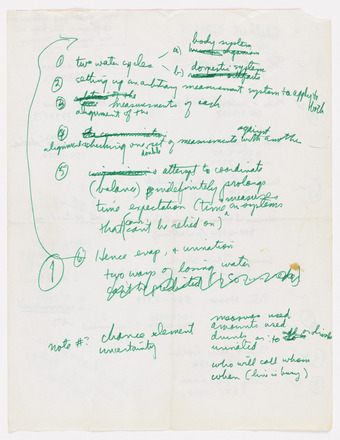 body system
① two water cycles a) human organism
b) domestic system
② setting up an arbitrary measurement system to apply to both
③ measurements of each
alignment of the
④ against
checking one set of measurements with another
double
⑤ attempt to coordinate
(balance) + indefinitely prolong
time expectation (time measures systems
that (can / can't be relied on)
① ⑥ Hence evap. + urination
two ways of losing water
can't be predicted
note #? chance element
uncertainty
measures used
amounts used
drunk as to or drink
urinated
who will call whom
when (line is busy)